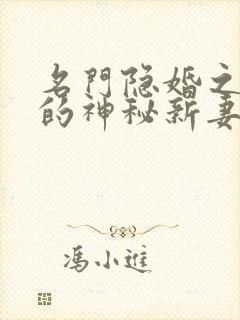 名門隐婚之
的神秘新妻
馮小進